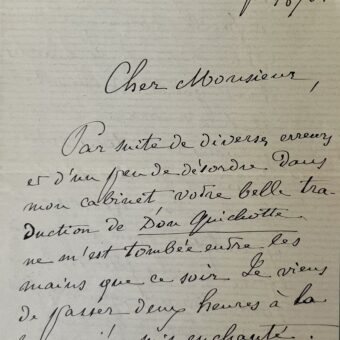 Cher Monsieur,
Par suite de diverses erreurs
et d'un peu de désordre dans
mon cabinet votre belle tra-
duction de Don Quichotte.
ne m'est tombée entre les
mains que ce soir. Je viens
de passer deux heures à la
enchanté.